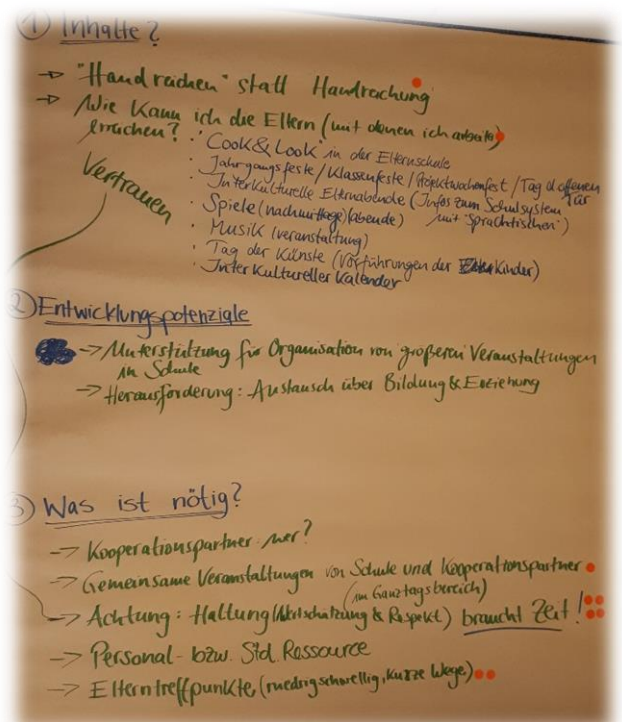 ① Inhalte?
→ "Handreichen" statt Handreichung
→ Wie kann ich die Eltern (mit denen ich arbeite)
erreichen?
Vertrauen
· "Cook & Look" in der Elternschule
· Jahrgangsfeste / Klassenfeste / Projektwochenfest / Tag d. offenen Tür
· Interkulturelle Elternabende (Infos zum Schulsystem
mit "Sprachtischen")
· Spiele (nachmittage) (abende)
· Musik (veranstaltung)
· Tag der Künste (Vorführungen der Kinder)
· Interkultureller Kalender
② Entwicklungspotenziale
→ Unterstützung für Organisation von größeren Veranstaltungen
in Schule
→ Herausforderung: Austausch über Bildung & Erziehung
③ Was ist nötig?
→ Kooperationspartner: wer?
→ Gemeinsame Veranstaltungen von Schule und Kooperationspartner
(im Ganztagsbereich)
→ Achtung: Haltung (Wertschätzung & Respekt) braucht Zeit!
→ Personal- bzw. Std. Ressource
→ Elterntreffpunkte, (niedrigschwellig, kurze Wege)